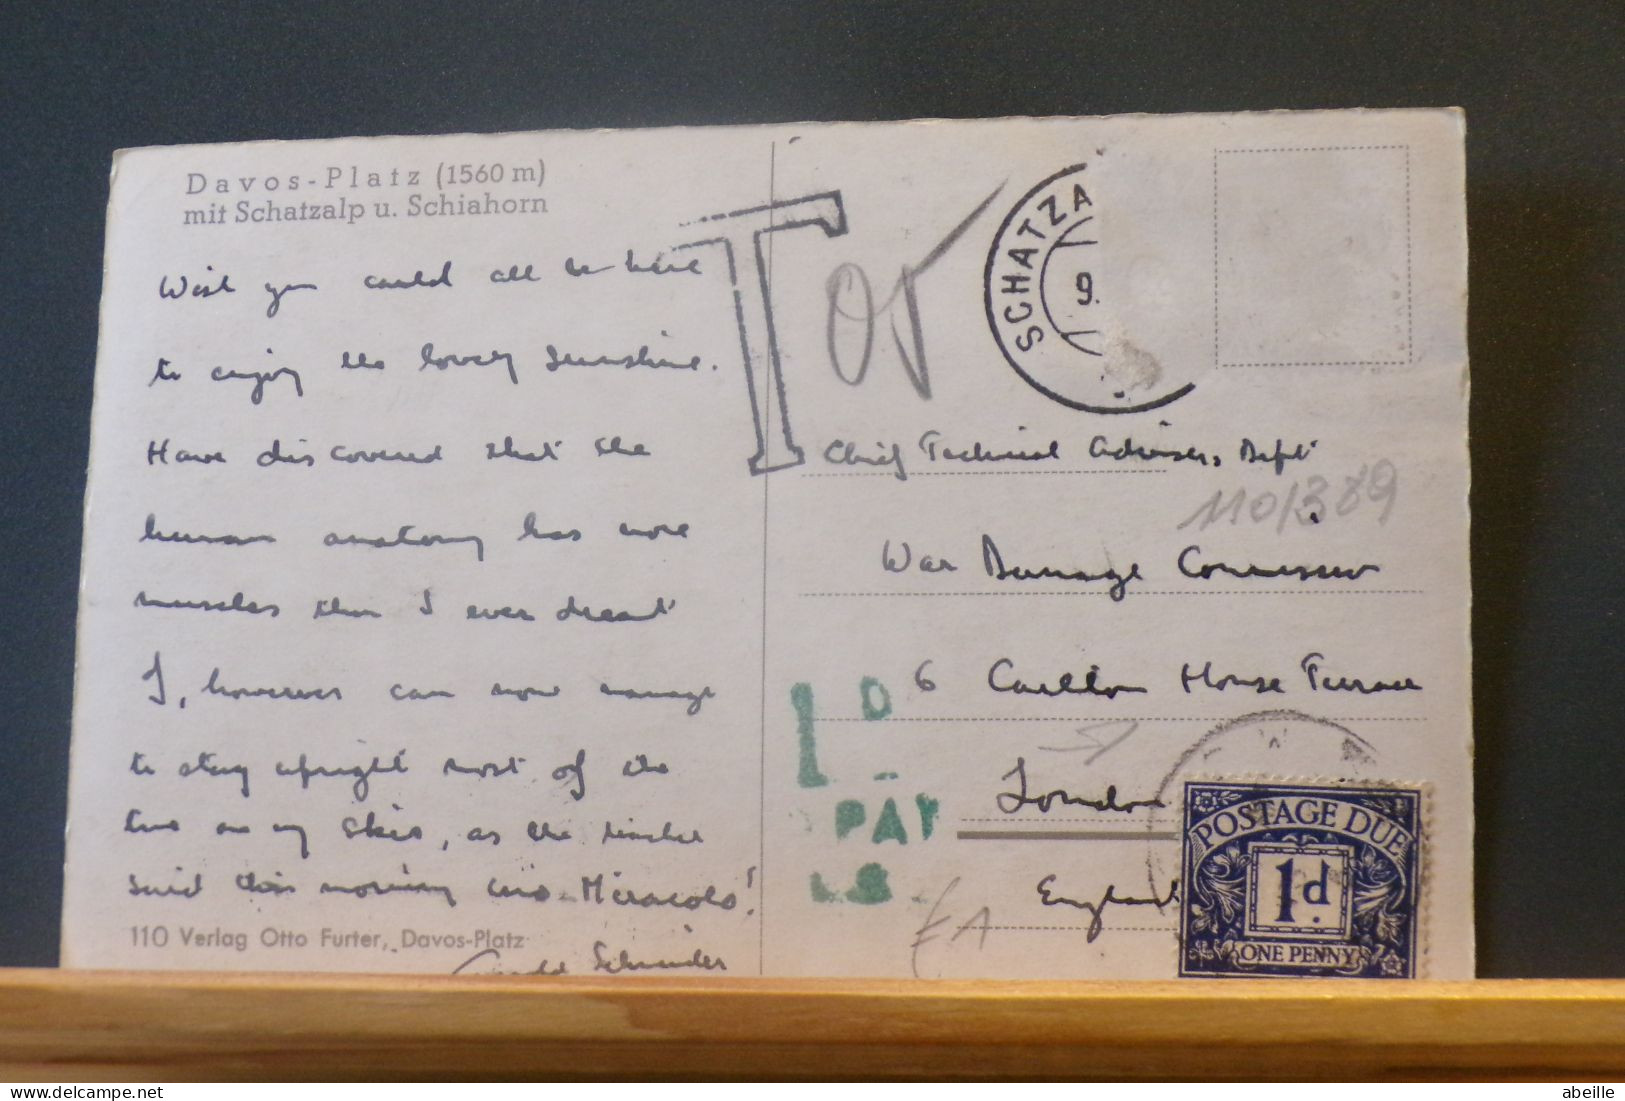 Davos-Platz (1560 m)
mit Schatzalp u. Schiahorn
Wish you could all be here
to enjoy the lovely sunshine.
Have discovered that the
human anatomy has more
muscles than I ever dreamt
I, however can now manage
to stay upright most of the
time on my skis, as the teacher
said this morning Miracolo!
110 Verlag Otto Furter, Davos-Platz
Schneider
T
SCHATZA
9.
Chief Technical Adviser, Dept
110/389
War Damage Commission
6 Carlton House Terrace
London
England
1D
PAY
£1
POSTAGE DUE
1d.
ONE PENNY
abeille